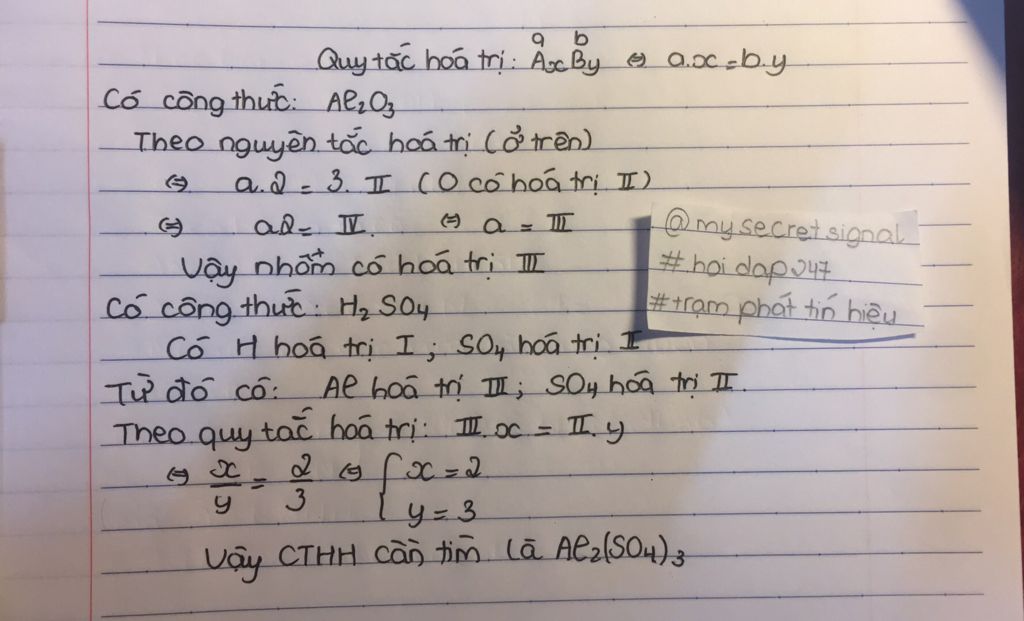 a b
Quy tắc hoá trị: AxBy ⇔ a.x=b.y
Có công thức: Al₂O₃
Theo nguyên tắc hoá trị (ở trên)
⇔ a.2 = 3. II (O có hoá trị II)
⇔ a2= IV. ⇔ a = III
Vậy nhôm có hoá trị III
Có công thức: H₂SO₄
Có H hoá trị I ; SO₄ hoá trị II
Từ đó có: Al hoá trị III ; SO₄ hoá trị II.
Theo quy tắc hoá trị: III.x = II.y
⇔ x/y = 2/3 ⇔ { x = 2
y = 3
Vậy CTHH cần tìm là Al₂(SO₄)₃
@mysecretsignal
#hoidap247
#trạm phát tín hiệu